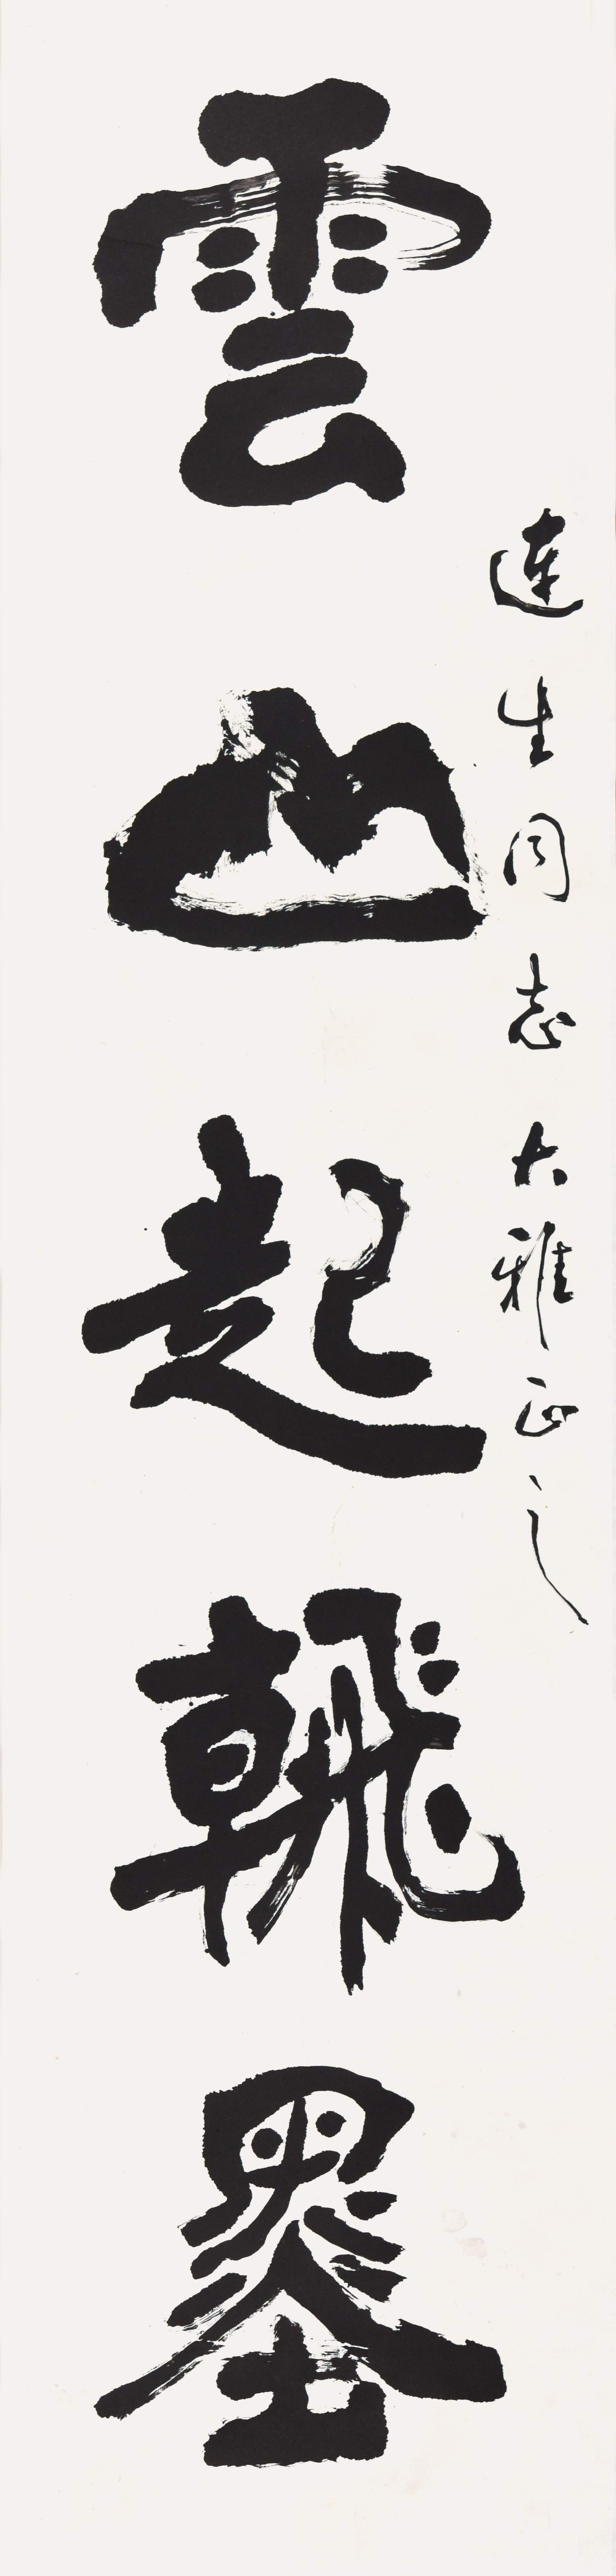 連生同志大雅正之
雲山起翰墨